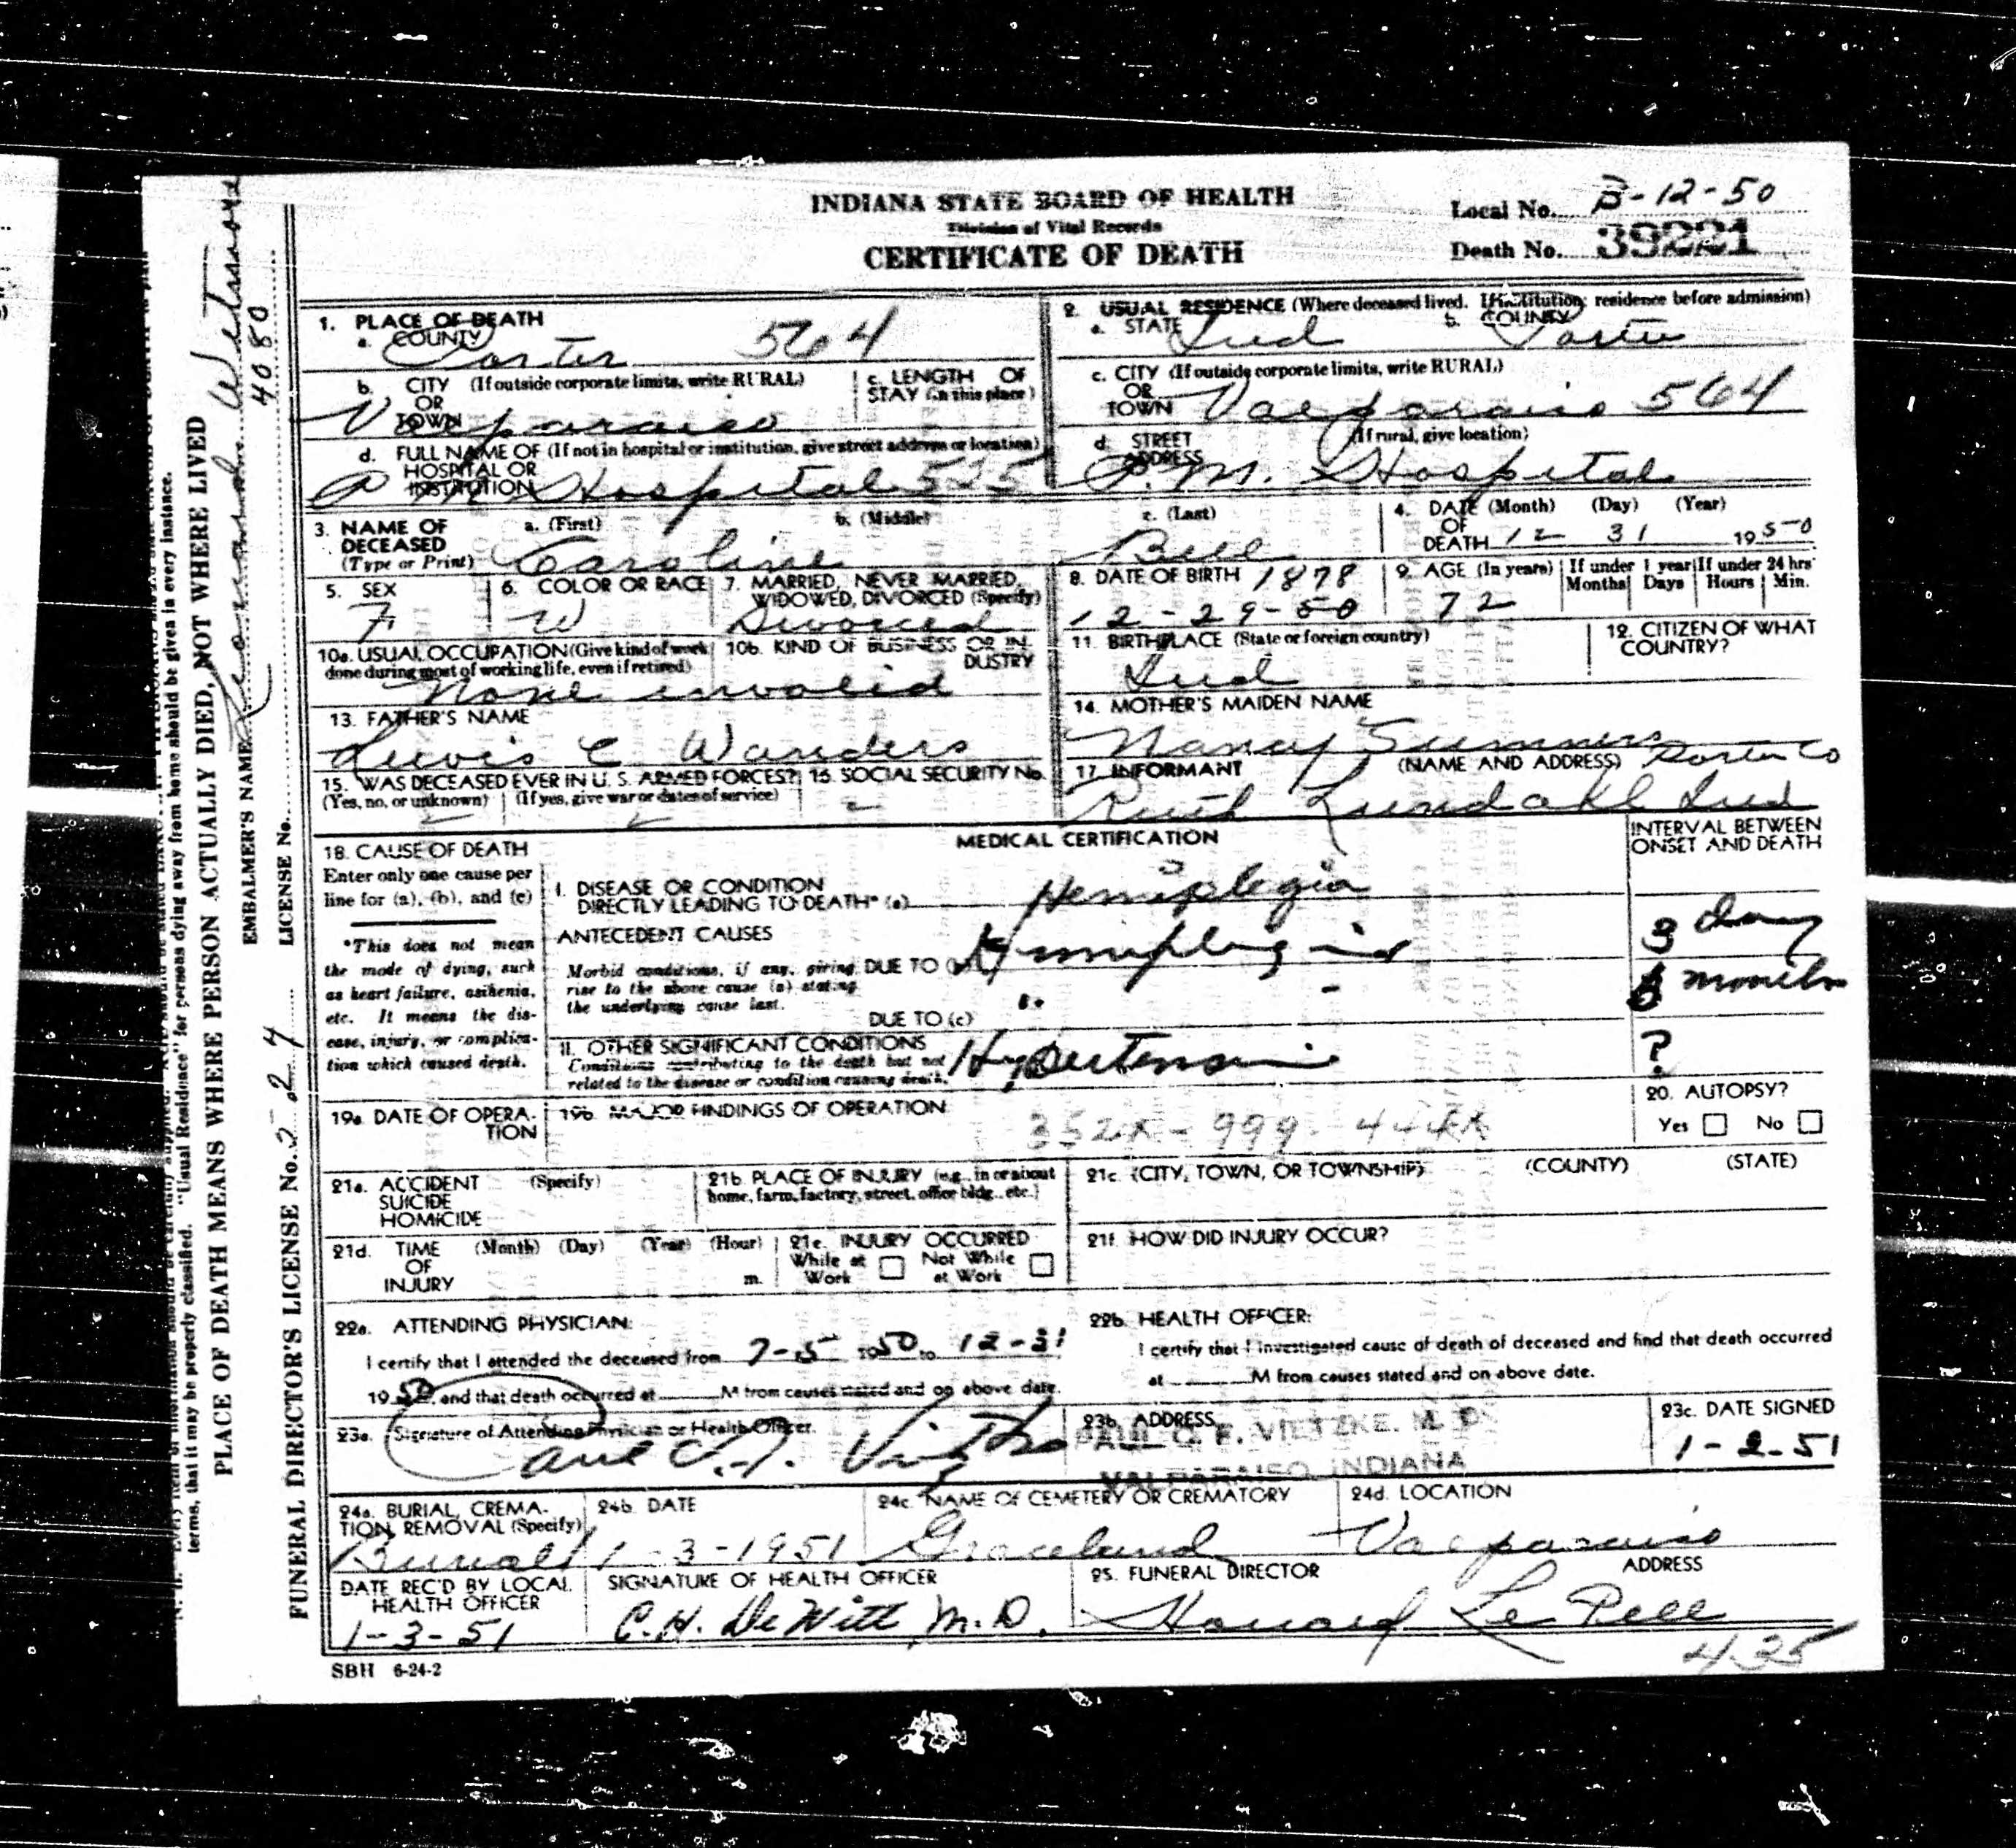 INDIANA STATE BOARD OF HEALTH
Division of Vital Records
CERTIFICATE OF DEATH
Local No. B-12-50
Death No. 39221
1. PLACE OF DEATH
a. COUNTY Porter 564
b. CITY (If outside corporate limits, write RURAL) OR TOWN Valparaiso
c. LENGTH OF STAY (in this place)
d. FULL NAME OF (If not in hospital or institution, give street address or location) HOSPITAL OR INSTITUTION Hospital 525
2. USUAL RESIDENCE (Where deceased lived. If institution: residence before admission)
a. STATE Ind b. COUNTY Porter
c. CITY (If outside corporate limits, write RURAL) OR TOWN Valparaiso 564
d. STREET ADDRESS (If rural, give location) P.M. Hospital
3. NAME OF DECEASED (Type or Print) a. (First) Caroline b. (Middle) c. (Last) Bell
4. DATE OF DEATH (Month) (Day) (Year) 12 31 1950
5. SEX F
6. COLOR OR RACE W
7. MARRIED, NEVER MARRIED, WIDOWED, DIVORCED (Specify) Divorced
8. DATE OF BIRTH 1878 12-29-50
9. AGE (In years) 72 If under 1 year Months Days If under 24 hrs. Hours Min.
10a. USUAL OCCUPATION (Give kind of work done during most of working life, even if retired) None invalid
10b. KIND OF BUSINESS OR INDUSTRY
11. BIRTHPLACE (State or foreign country) Ind
12. CITIZEN OF WHAT COUNTRY?
13. FATHER'S NAME Lewis C Wanders
14. MOTHER'S MAIDEN NAME Nancy Summers
15. WAS DECEASED EVER IN U. S. ARMED FORCES? (Yes, no, or unknown) (If yes, give war or dates of service)
16. SOCIAL SECURITY No.
17. INFORMANT (NAME AND ADDRESS) Porter Co
Ruth Lundahl Ind
MEDICAL CERTIFICATION
INTERVAL BETWEEN ONSET AND DEATH
18. CAUSE OF DEATH
Enter only one cause per line for (a), (b), and (c)
*This does not mean the mode of dying, such as heart failure, asthenia, etc. It means the disease, injury, or complication which caused death.
I. DISEASE OR CONDITION DIRECTLY LEADING TO DEATH* (a) Hemiplegia
3 days
ANTECEDENT CAUSES
Morbid conditions, if any, giving rise to the above cause (a) stating the underlying cause last.
DUE TO (b) Hemiplegia
6 months
DUE TO (c)
II. OTHER SIGNIFICANT CONDITIONS
Conditions contributing to the death but not related to the disease or condition causing death.
Hypertension
?
19a. DATE OF OPERATION
19b. MAJOR FINDINGS OF OPERATION
352X - 999 - 444X
20. AUTOPSY?
Yes No
21a. ACCIDENT SUICIDE HOMICIDE (Specify)
21b. PLACE OF INJURY (e.g., in or about home, farm, factory, street, office bldg., etc.)
21c. (CITY, TOWN, OR TOWNSHIP) (COUNTY) (STATE)
21d. TIME OF INJURY (Month) (Day) (Year) (Hour) m.
21e. INJURY OCCURRED While at Work Not While at Work
21f. HOW DID INJURY OCCUR?
22a. ATTENDING PHYSICIAN:
I certify that I attended the deceased from 7-5 1950 to 12-31
1950, and that death occurred at M from causes stated and on above date.
22b. HEALTH OFFICER:
I certify that I investigated cause of death of deceased and find that death occurred
at M from causes stated and on above date.
23a. Signature of Attending Physician or Health Officer.
23b. ADDRESS
PAUL O. F. VIETZKE. M. D.
VALPARAISO, INDIANA
23c. DATE SIGNED
1-2-51
24a. BURIAL, CREMATION, REMOVAL (Specify) Burial
24b. DATE 1-3-1951
24c. NAME OF CEMETERY OR CREMATORY Graceland
24d. LOCATION Valparaiso
DATE REC'D BY LOCAL HEALTH OFFICER 1-3-51
SIGNATURE OF HEALTH OFFICER C.H. DeWitt, M.D.
25. FUNERAL DIRECTOR ADDRESS
Howard Le Pell
435
SBH 6-24-2
terms, that it may be properly classified. "Usual Residence" for persons dying away from home should be given in every instance.
PLACE OF DEATH MEANS WHERE PERSON ACTUALLY DIED, NOT WHERE LIVED
EMBALMER'S NAME
LICENSE No. 4080
FUNERAL DIRECTOR'S LICENSE No.